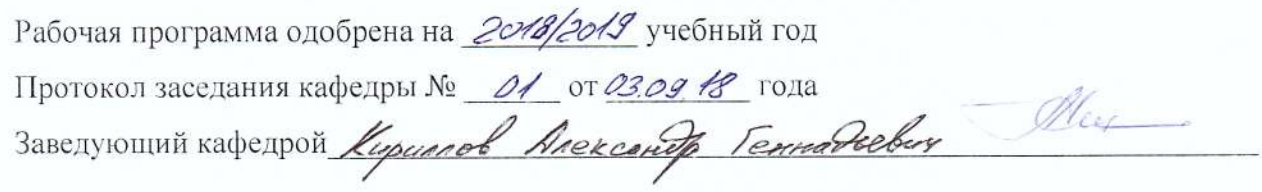 Рабочая программа одобрена на 2018/2019 учебный год
Протокол заседания кафедры № 01 от 03.09.18 года
Заведующий кафедрой Кириллов Александр Геннадьевич